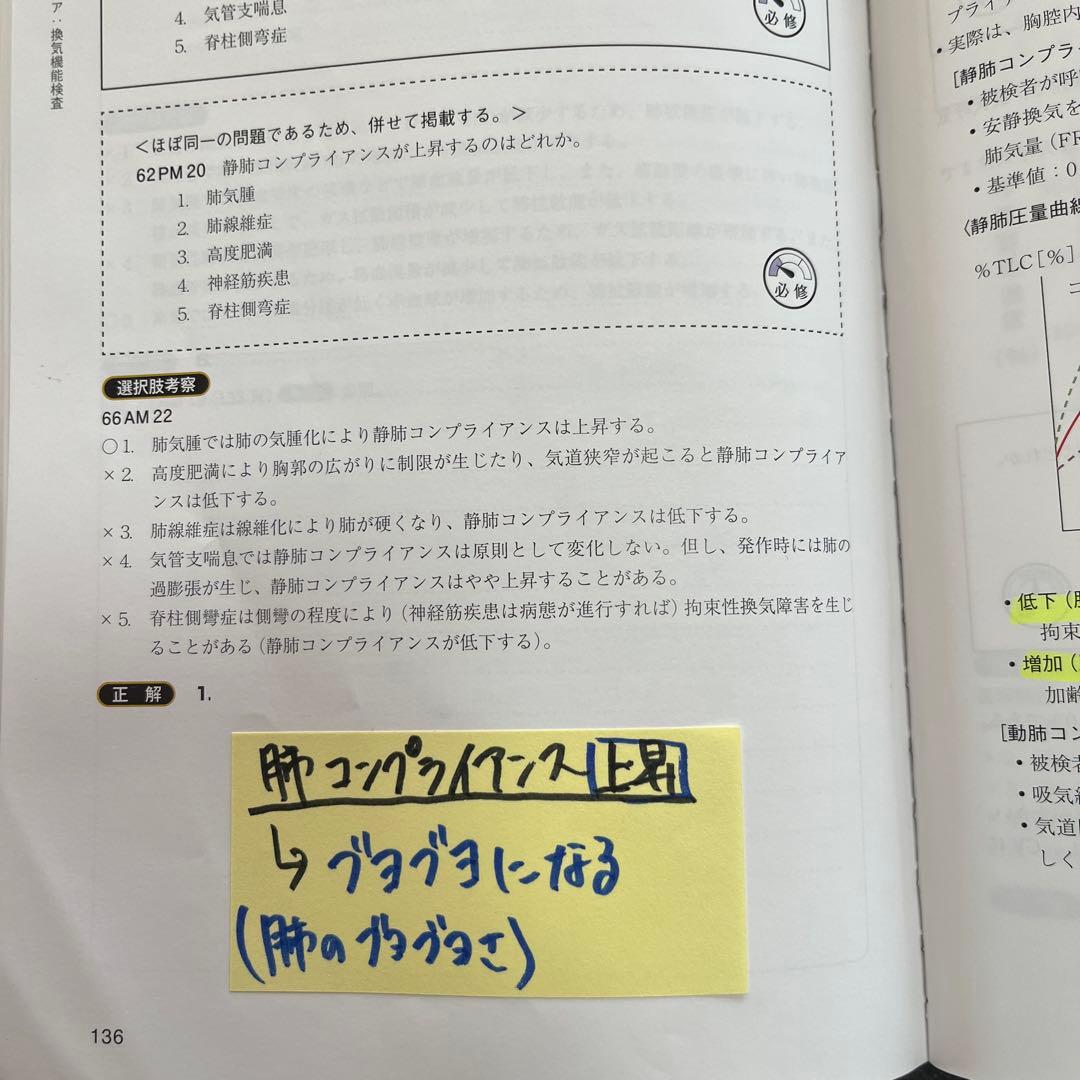 ア:換気機能検査
4. 気管支喘息
5. 脊柱側弯症
必修
<ほぼ同一の問題であるため、併せて掲載する。>
62PM20 静肺コンプライアンスが上昇するのはどれか。
1. 肺気腫
2. 肺線維症
3. 高度肥満
4. 神経筋疾患
5. 脊柱側弯症
必修
選択肢考察
66AM22
○1. 肺気腫では肺の気腫化により静肺コンプライアンスは上昇する。
×2. 高度肥満により胸郭の広がりに制限が生じたり、気道狭窄が起こると静肺コンプライア
ンスは低下する。
×3. 肺線維症は線維化により肺が硬くなり、静肺コンプライアンスは低下する。
×4. 気管支喘息では静肺コンプライアンスは原則として変化しない。但し、発作時には肺の
過膨張が生じ、静肺コンプライアンスはやや上昇することがある。
×5. 脊柱側彎症は側彎の程度により(神経筋疾患は病態が進行すれば)拘束性換気障害を生じ
ることがある(静肺コンプライアンスが低下する)。
正解 1.
肺コンプライアンス上昇
↳ブヨブヨになる
(肺のブヨブヨさ)
136
プライア
・実際は、胸腔内
[静肺コンプラ
・被検者が呼
・安静換気を
肺気量(FR
・基準値:0
〈静肺圧量曲線
%TLC[%]
・低下(
拘束
・増加(
加齢
[動肺コン
・被検者
・吸気終
・気道
しく